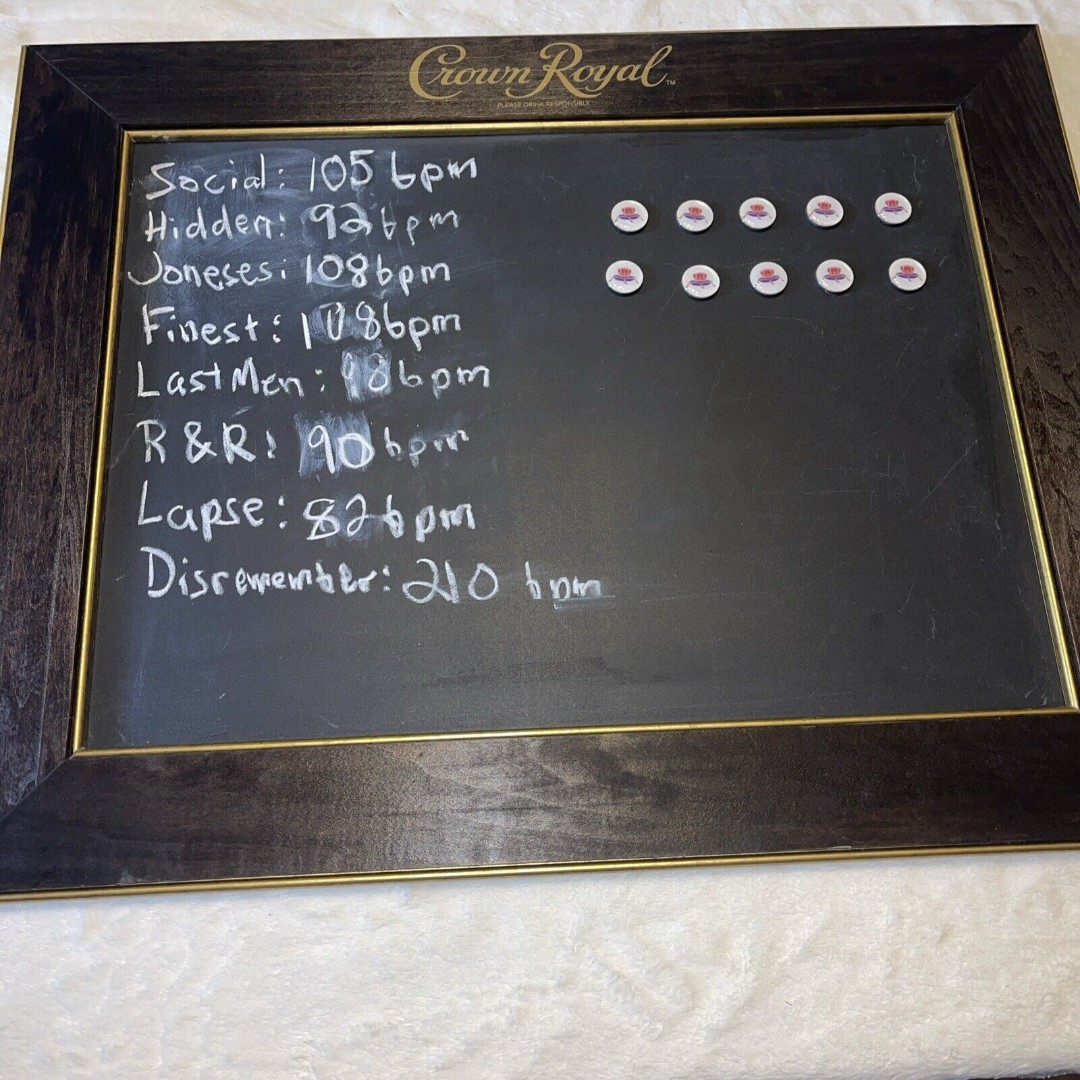 Crown Royal™
PLEASE DRINK RESPONSIBLY.
Social: 105 bpm
Hidden: 92 bpm
Joneses: 108 bpm
Finest: 108 bpm
Last Men: 98 bpm
R & R: 90 bpm
Lapse: 82 bpm
Disremember: 210 bpm